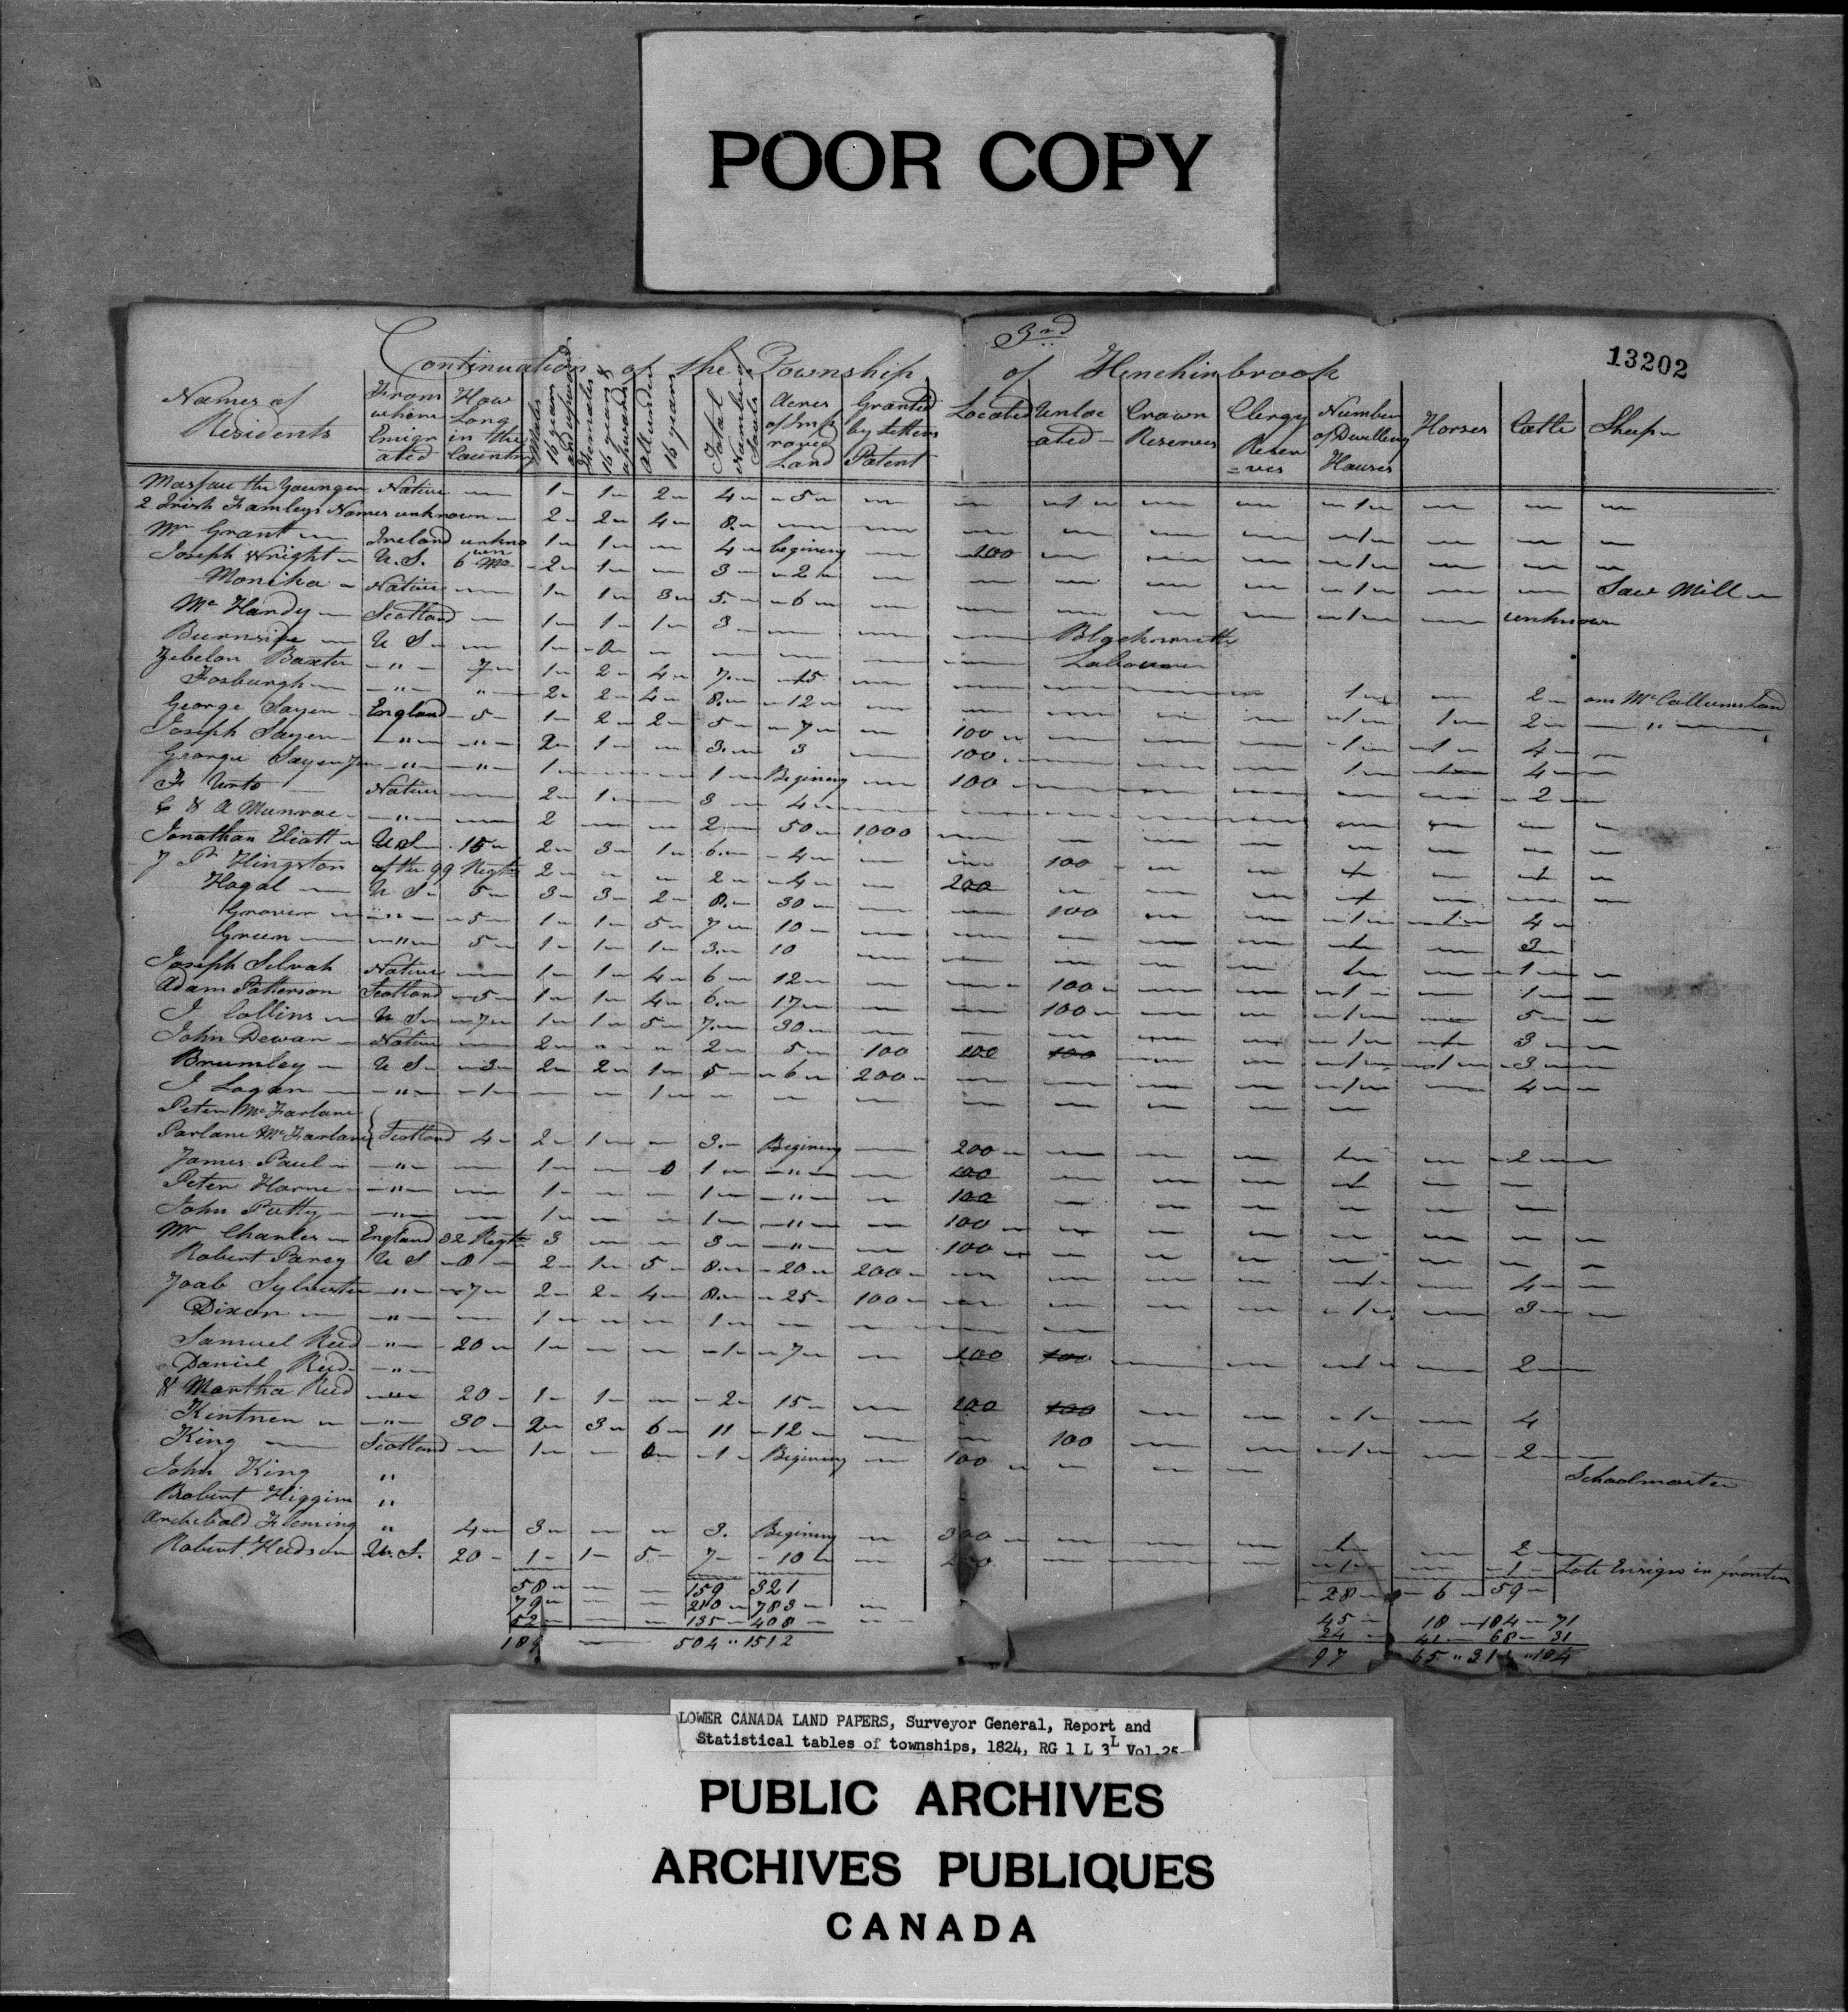 POOR COPY
3rd
13202
Continuation of the Township of Hinchinbrook
Names of Residents | From where Emigrated | How Long in the Country | Males 16 years and upwards | Females 16 years & upwards | All under 16 years | Total Number of Souls | Acres of Improved Land | Granted by Letters Patent | Located | Unlocated | Crown Reserves | Clergy Reserves | Number of Dwelling Houses | Horses | Cattle | Sheep
the Younger Native 1 1 2 4 5 1
2 Irish Familys Names unknown 2 2 4 8
Mr Grant Ireland unknown 1 1 4 begining 1
Joseph Wright U.S. 6 Mo 2 1 3 2 200 1
Native 1 1 3 5 6 1 Saw Mill
Mc Handy Scotland 1 1 1 3 1 unknown
Burnside U S 1 0 Blacksmith
Zebelon Baxter " 7 1 2 4 7 15 Labourer
Fosburgh " " 2 2 4 8 12 1 2 on Mc Callums Land
George Sayer England 5 1 2 2 5 7 100 1 1 2 "
Joseph Sayer " " 2 1 3 3 100 1 1 4
George Sayer Jun " " 1 1 Begining 100 1 1 4
Native 2 1 3 4 2
C & A Munroe " 2 2 50 1000
Jonathan Eliott U S 15 2 3 1 6 4 100
Hingston of the 99 Regt 2 2 4 200 1 1
Hagal U S 5 3 3 2 8 30 100 1
Grover " 5 1 1 5 7 10 1 1 4
Green " 5 1 1 1 3 10 1 3
Joseph Selvah Native 1 1 4 6 12 100 1 1
Adam Patterson Scotland 5 1 1 4 6 17 100 1 1
J Collins U S 7 1 1 5 7 30 1 5
John Dewan Native 2 2 5 100 100 100 1 1 3
Brumley U S 3 2 2 1 5 6 200 1 1 3
J Logan " 1 1 1 4
Peter McFarlane
Parlane McFarlane Scotland 4 2 1 3 Begining 200 1 2
James Paul " 1 0 1 " 100 1
Peter Horne " 1 1 " 100
John Putty " 1 1 " 100
Mr Charles England 32 Regt 3 3 " 100
Robert Parcy U S 8 2 1 5 8 20 200 1 4
Joab Sylvester " 7 2 2 4 8 25 100 1 3
Dixon " 1 1
Samuel Reed " 20 1 1 7 100 100 1 2
Daniel Reed "
& Martha Reed " 20 1 1 2 15 200 100 1 4
Kintner " 30 2 3 6 11 12 100 1 2
King Scotland 1 0 1 Begining 100
John King " Schoolmaster
Robert Higgins "
Archibald Fleming " 4 3 3 Begining 300 1 2
Robert Hudson U.S. 20 1 1 5 7 10 200 1 1 Late Ensign in
58 159 321 28 6 59
79 210 783 45 18 184 71
52 135 408 24 41 68 31
189 504 " 1512 97 65 " 311 " 104
LOWER CANADA LAND PAPERS, Surveyor General, Report and
Statistical tables of townships, 1824, RG 1 L 3L Vol.25
PUBLIC ARCHIVES
ARCHIVES PUBLIQUES
CANADA